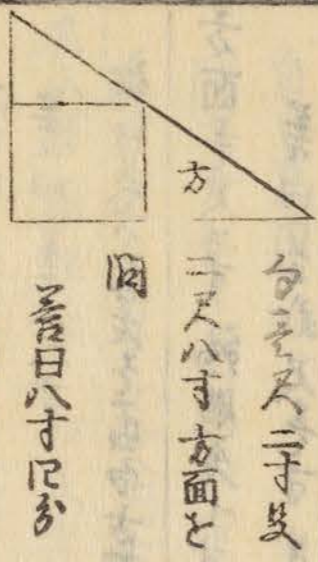 勾壱尺二寸股
二尺八寸方面を
問
答曰八寸四分
方